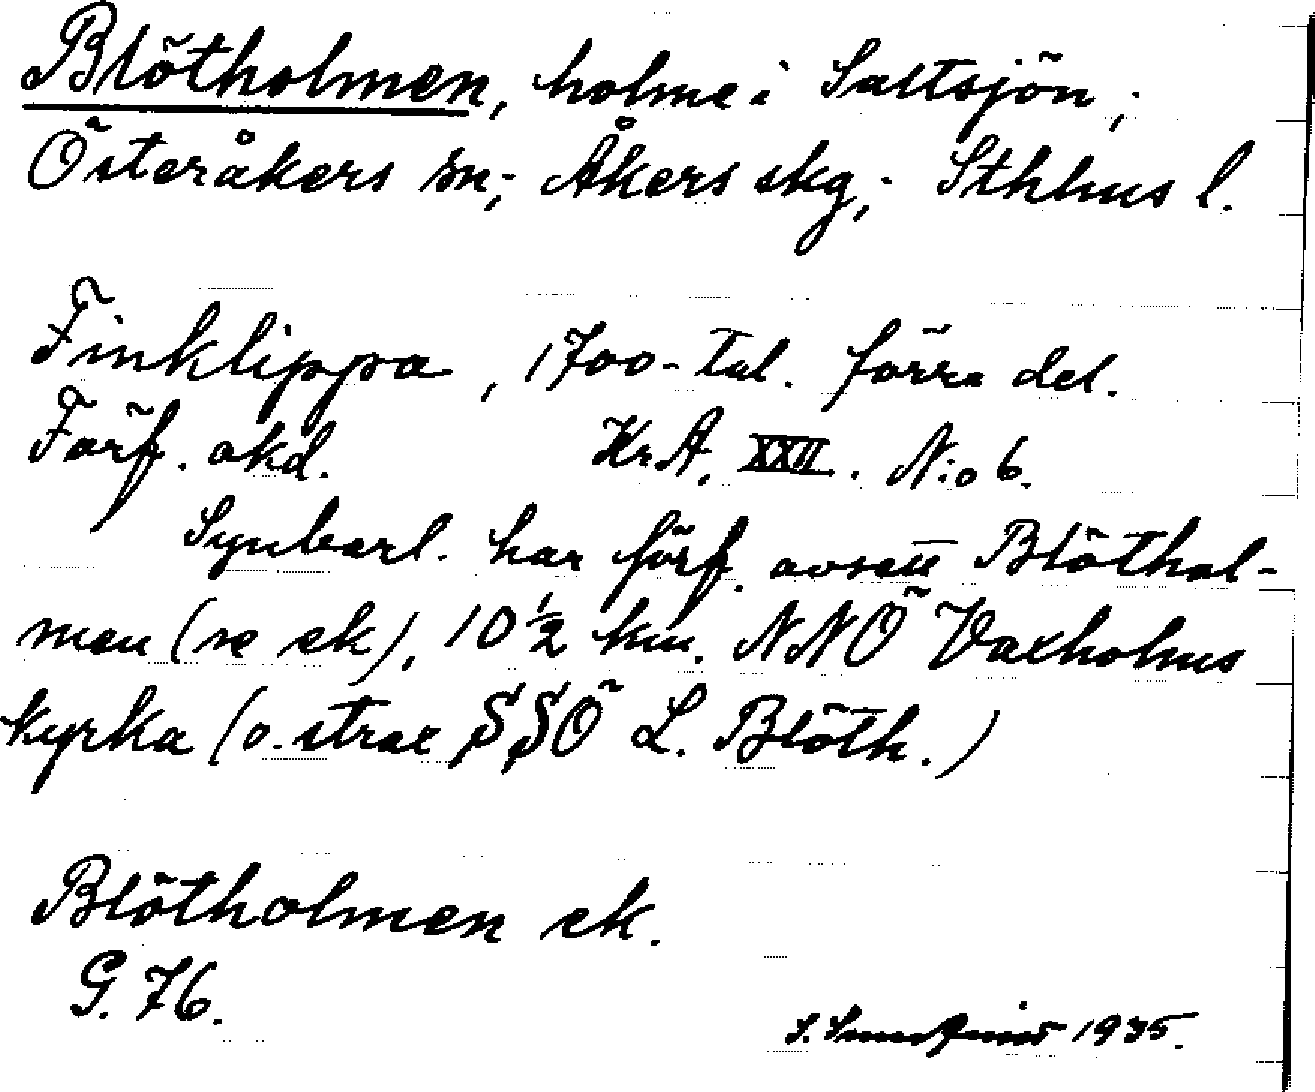 Blötholmen, holme i Saltsjön,;
Österåkers sn,; Åkers skg,; Sthlms l.
Finklippa, 1700-tal. förra del.
Förf. okd. Kr.A. XXII. N:o 6.
Synbarl. har förf. avsett Blöthol-
men (se ek), 10 1/2 km. NNÖ Vaxholms
kyrka (o. strax SSÖ L. Blöth.)
Blötholmen ek.
G. 76.
S. 1935.